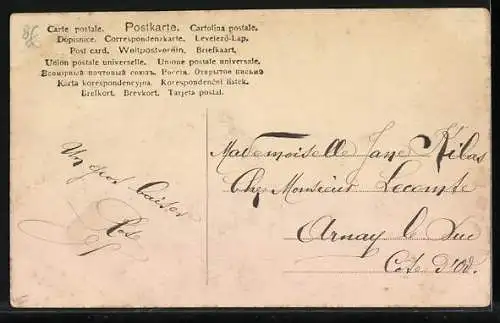 8f
Carte postale. Postkarte. Cartolina postale.
Dopisnice. Correspondenzkarte. Levelező-Lap.
Post card. Weltpostverein. Briefkaart.
Union postale universelle. Unione postale universale.
Всемірный почтовый союзъ. Россія. Открытое письмо
Karta korespondencyjna. Korespondenční lístek.
Brefkort. Brevkort. Tarjeta postal.
Un gros baiser
Mademoiselle Jane Kilas
Chez Monsieur Lecomte
Arnay le Duc
Cote d'Or.